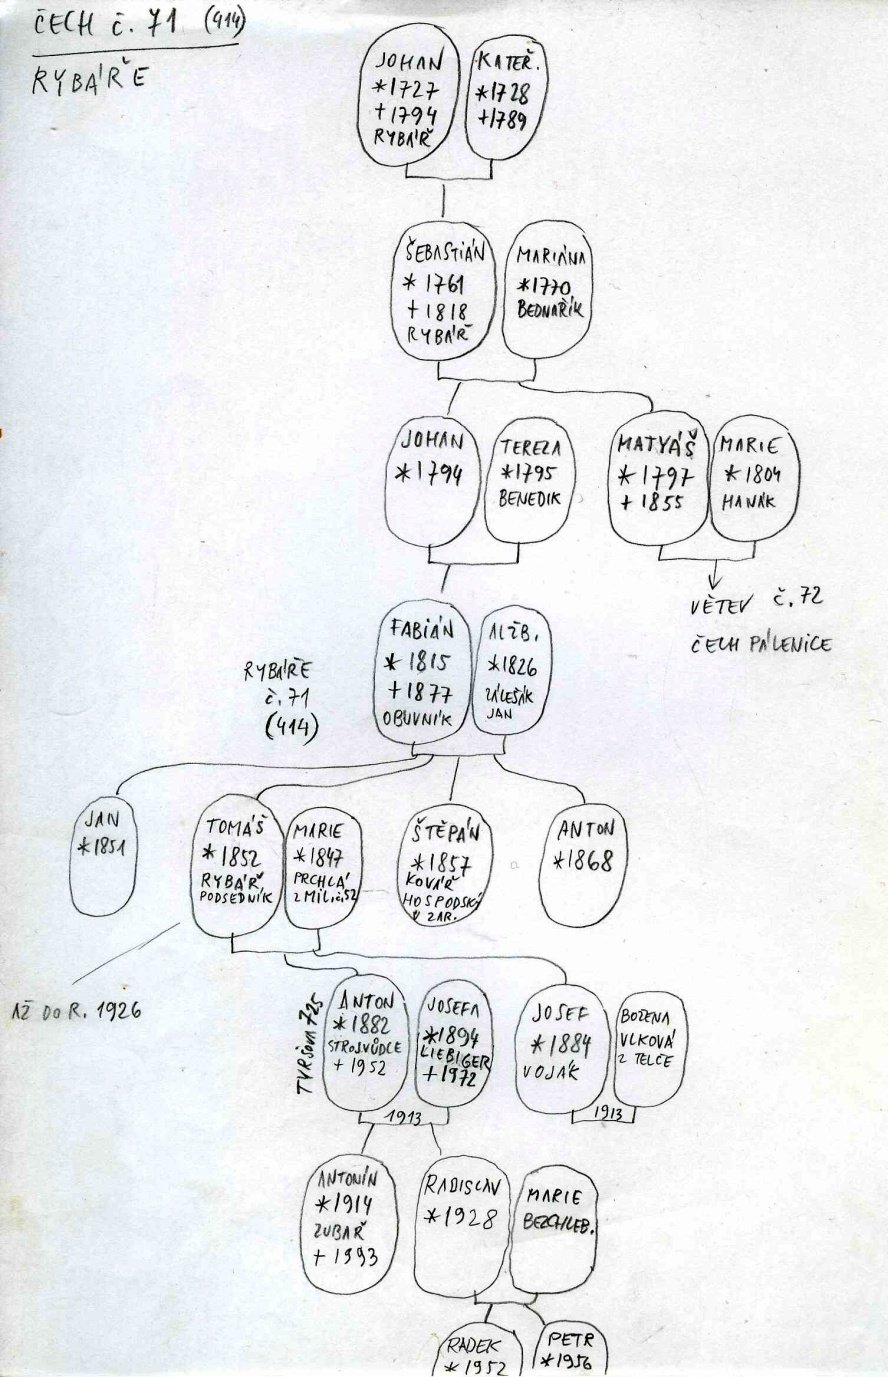 ČECH č. 71 (414)
RYBÁŘE
JOHAN
*1727
+1794
RYBÁŘ
KATEŘ.
*1728
+1789
ŠEBASTIÁN
*1761
+1818
RYBÁŘ
MARIÁNA
*1770
BEDNAŘÍK
JOHAN
*1794
TEREZA
*1795
BENEDIK
MATYÁŠ
*1797
+1855
MARIE
*1804
HANÁK
VĚTEV č. 72
ČECH PÁLENICE
RYBÁŘE
č. 71
(414)
FABIÁN
*1815
+1877
OBUVNÍK
ALŽB.
*1826
ZÁLEŠÁK
JAN
JAN
*1851
TOMÁŠ
*1852
RYBÁŘ
PODSEDNÍK
MARIE
*1847
PRCHLÁ
z MIL. č. 52
ŠTĚPÁN
*1857
KOVÁŘ
HOSPODSKÝ
V ZAR.
ANTON
*1868
AŽ DO R. 1926
TYRŠOVA 725
ANTON
*1882
STROJVŮDCE
+1952
JOSEFA
*1894
LIEBIGER
+1972
JOSEF
*1884
VOJÁK
BOŽENA
VLKOVÁ
Z TELČE
1913
1913
ANTONÍN
*1914
ZUBAŘ
+1993
RADISLAV
*1928
MARIE
BEZCHLEB.
RADEK
*1952
PETR
*1956